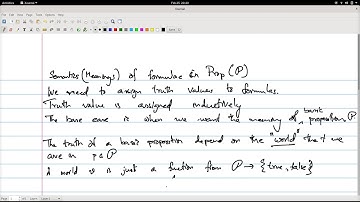 Semantics (Meanings) of formulae in Prop (P)
We need to assign truth values to formulas.
Truth value is assigned inductively
The base case is when we want the meaning of basic proposition P
The truth of a basic proposition depend on the "world" that we
are in p ∈ P
A world is just a function from P → {true, false}